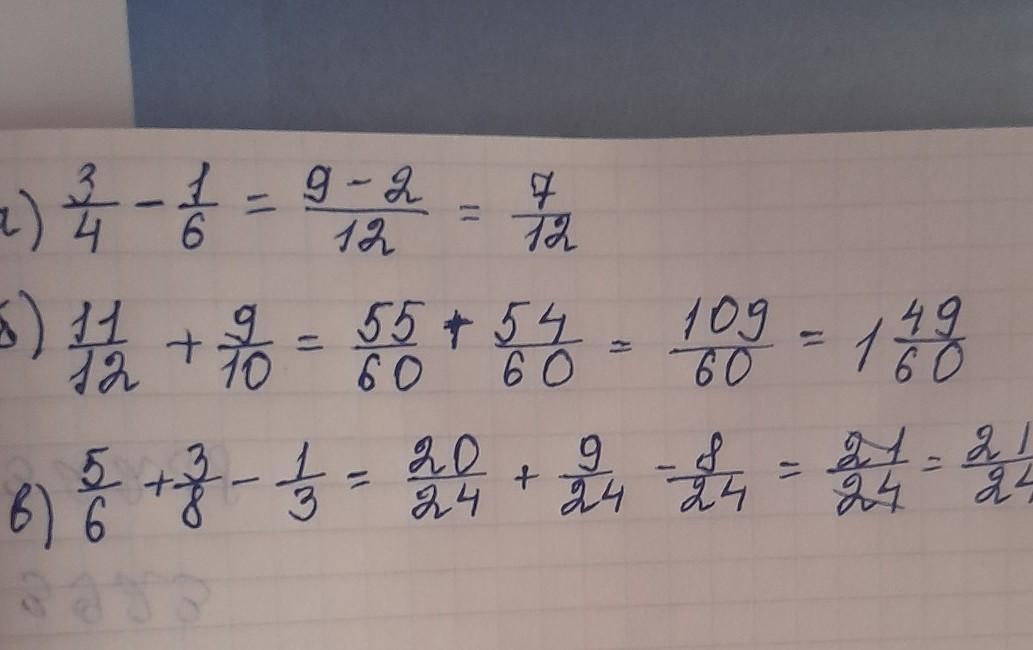 а) 3/4 - 1/6 = (9 - 2)/12 = 7/12
б) 11/12 + 9/10 = 55/60 + 54/60 = 109/60 = 1 49/60
в) 5/6 + 3/8 - 1/3 = 20/24 + 9/24 - 8/24 = 21/24 = 21/24